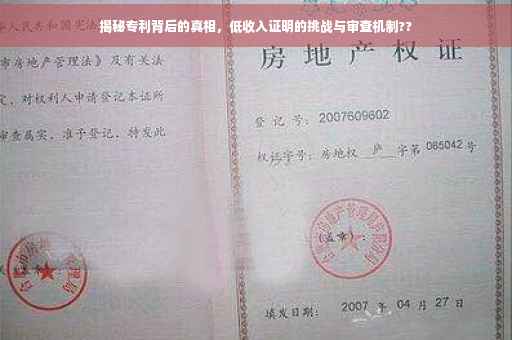 揭秘专利背后的真相，低收入证明的挑战与审查机制??
人民共和国宪法
市房地产管理法》及有关法
定，对权利人申请登记本证所
审查属实，准予登记，特发此
房地产权证
登 记 号: 2007609602
权证字号: 房地权 庐 字第 085042 号
(盖章):
填发日期: 2007 年 04 月 27 日